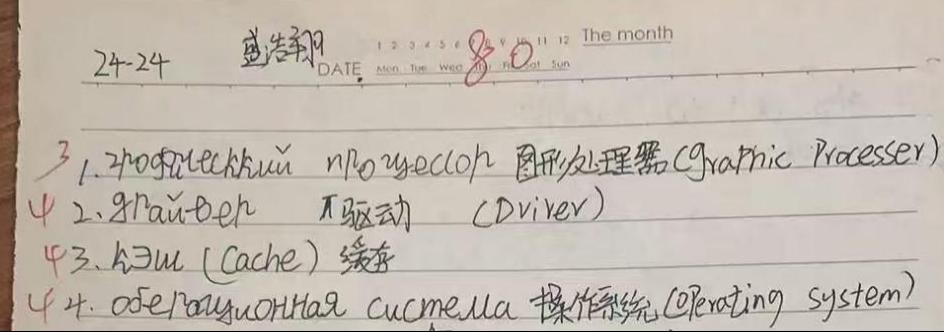 1 2 3 4 5 6 8 9 10 11 12 The month
24-24 盛浩翔 DATE Mon Tue Wed Thu Fri Sat Sun
80
3 1. графический процессор 图形处理器 (graphic Processer)
4 2. драйвер 驱动 (Driver)
4 3. кэш (Cache) 缓存
4 4. обепоационная система 操作系统 (operating system)